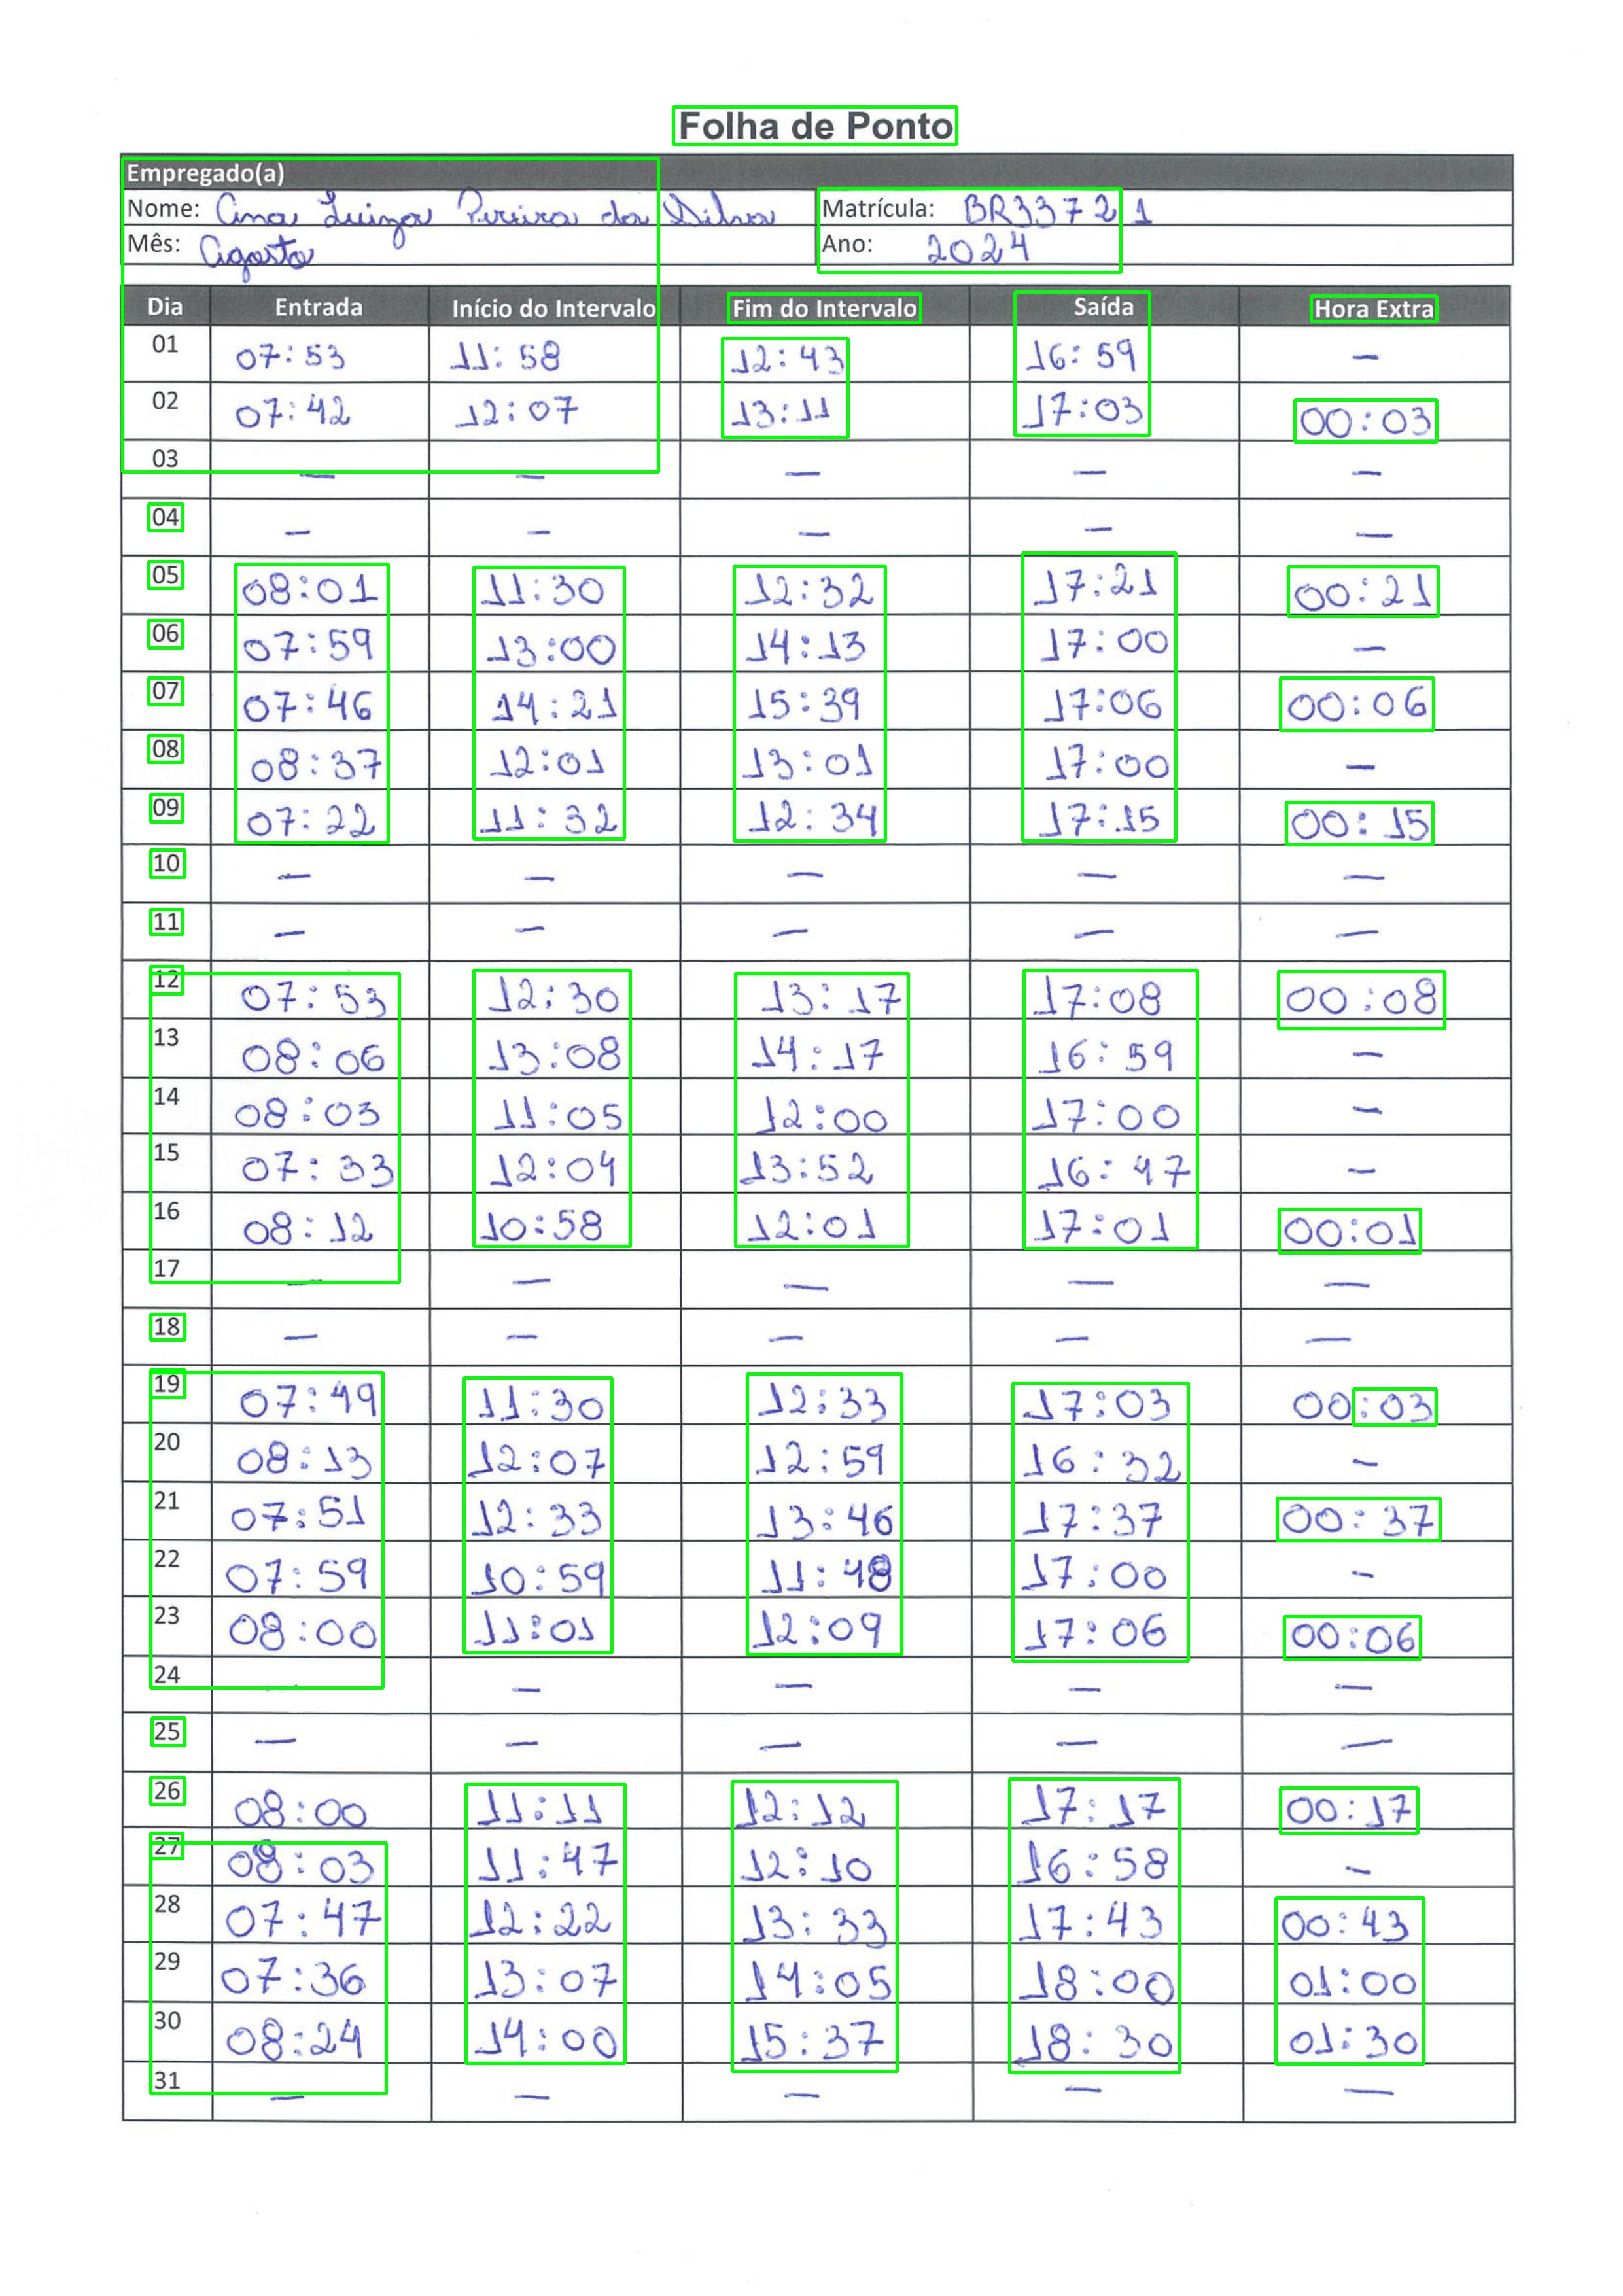 Folha de Ponto
Empregado(a)
Nome: Ana Luiza Pereira da Silva Matrícula: BR33721
Mês: Agosto Ano: 2024
Dia Entrada Início do Intervalo Fim do Intervalo Saída Hora Extra
01 07:53 11:58 12:43 16:59 —
02 07:42 12:07 13:11 17:03 00:03
03 — — — — —
04 — — — — —
05 08:01 11:30 12:32 17:21 00:21
06 07:59 13:00 14:13 17:00 —
07 07:46 14:21 15:39 17:06 00:06
08 08:37 12:01 13:01 17:00 —
09 07:22 11:32 12:34 17:15 00:15
10 — — — — —
11 — — — — —
12 07:53 12:30 13:17 17:08 00:08
13 08:06 13:08 14:17 16:59 —
14 08:03 11:05 12:00 17:00 —
15 07:33 12:04 13:52 16:47 —
16 08:12 10:58 12:01 17:01 00:01
17 — — — — —
18 — — — — —
19 07:49 11:30 12:33 17:03 00:03
20 08:13 12:07 12:59 16:32 —
21 07:51 12:33 13:46 17:37 00:37
22 07:59 10:59 11:48 17:00 —
23 08:00 11:01 12:09 17:06 00:06
24 — — — — —
25 — — — — —
26 08:00 11:11 12:12 17:17 00:17
27 08:03 11:47 12:10 16:58 —
28 07:47 12:22 13:33 17:43 00:43
29 07:36 13:07 14:05 18:00 01:00
30 08:24 14:00 15:37 18:30 01:30
31 — — — — —